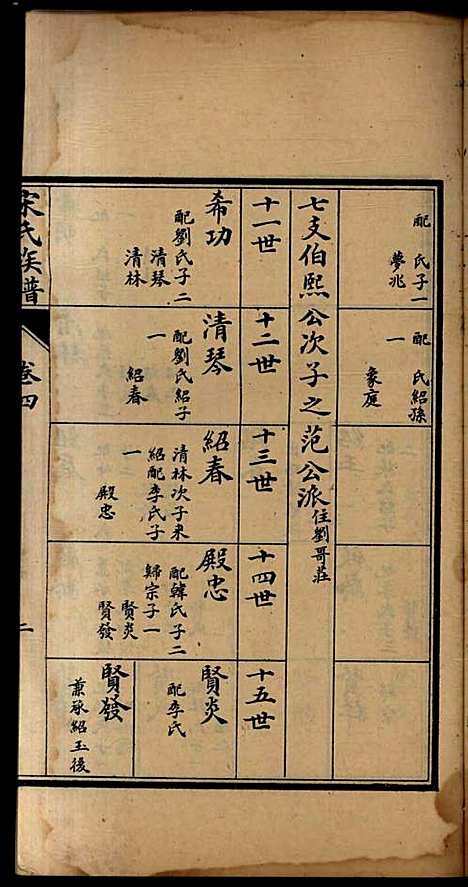 配　氏子一
夢兆
配　氏紹孫
一
象庭
七支伯熙公次子之范公派住劉哥莊
十一世
十二世
十三世
十四世
十五世
希功
配劉氏子二
清琴
清林
清琴
配劉氏紹子
一
紹春
紹春
清林次子来
紹配李氏子
一
殿忠
殿忠
配韓氏子二
歸宗子一
賢炎
賢發
賢炎
配李氏
賢發
兼承紹玉後
宋氏族譜
卷四
二